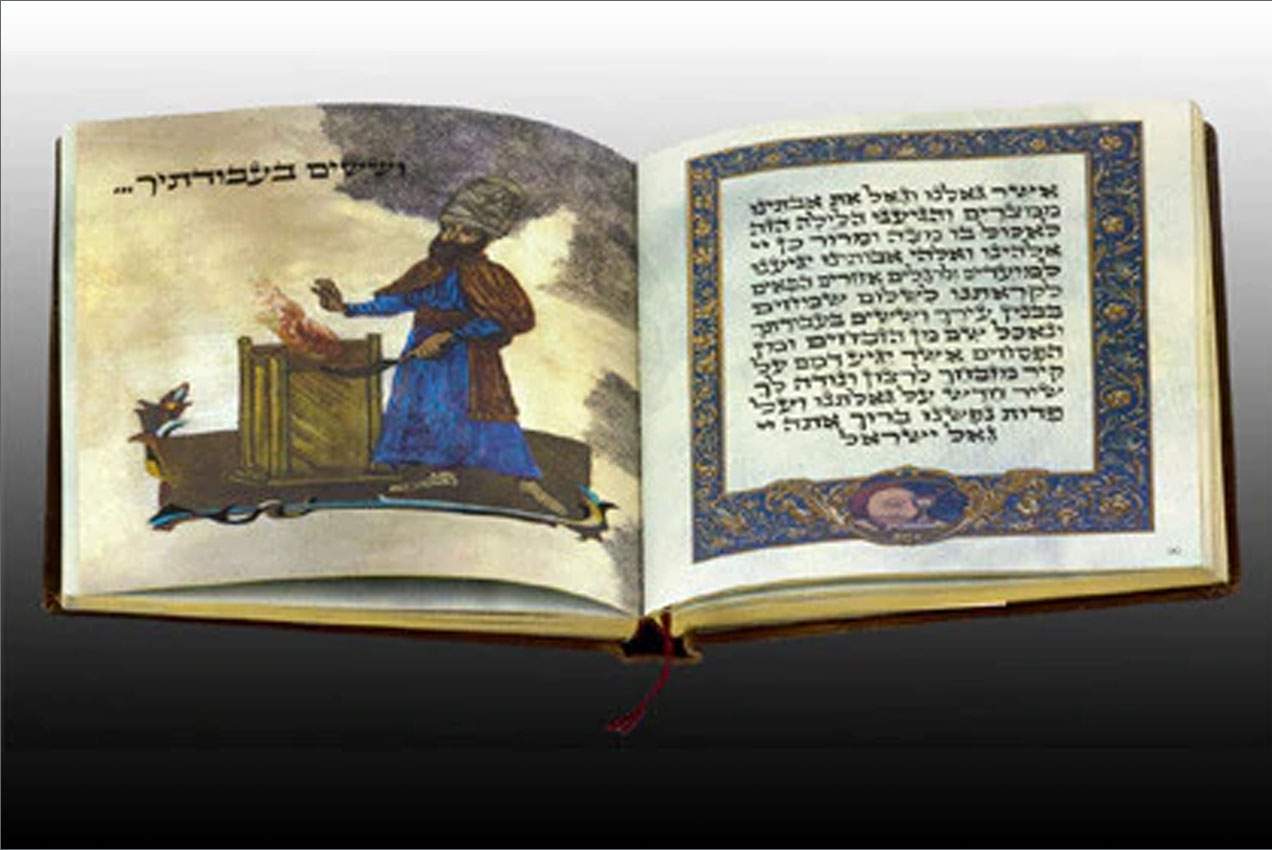 אשר גאלנו וגאל את אבתינו
ממצרים והגיענו הלילה הזה
לאכול בו מצה ומרור כן יי
אלהינו ואלהי אבותינו יגיענו
למועדים ולרגלים אחרים הבאים
לקראתנו לשלום שמחים
בבנין עירך וששים בעבודתך
ונאכל שם מן הזבחים ומן
הפסחים אשר יגיע דמם על
קיר מזבחך לרצון ונודה לך
שיר חדש על גאלתנו ועל
פדות נפשנו ברוך אתה יי
גאל ישראל
וששים בעבודתיך...